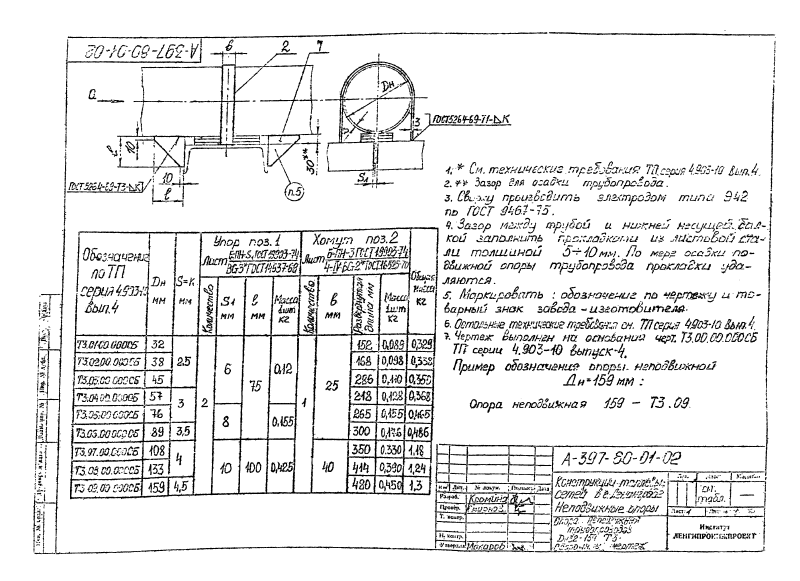 А-397-80-01-02
в
2
7
Q
Dн
ГОСТ5264-69-Т1-△К
10
10
30**
ГОСТ5264-69-Т3-△К
п.5
S1
1. * См. технические требования ТП серия 4.903-10 Вып.4.
2. ** Зазор для осадки трубопровода.
3. Сварку производить электродом типа Э42
по ГОСТ 9467-75.
4. Зазор между трубой и нижней несущей бал-
кой заполнить прокладками из листовой ста-
ли толщиной 5÷10 мм. По мере осадки по-
движной опоры трубопровода прокладки уда-
ляются.
5. Маркировать: обозначение по чертежу и то-
варный знак завода-изготовителя.
6. Остальные технические требования см. ТП серия 4.903-10 Вып.4.
7. Чертеж выполнен на основании черт. Т3.00.00.000СБ
ТП серии 4.903-10 выпуск-4.
Пример обозначения опоры неподвижной
Дн=159 мм:
Опора неподвижная 159 - Т3.09.
Обозначение по ТП серия 4.903-10 Вып.4
Dн мм
S=К мм
Упор поз.1
Хомут поз.2
Лист
Лист
Количество
S1 мм
ℓ мм
Масса 1шт кг
Количество
в мм
Развернутая длина мм
Масса 1шт кг
Общая масса кг
Т3.01.00.000СБ 32 152 0,089 0,329
Т3.02.00.000СБ 38 2,5 6 0,12 168 0,098 0,338
Т3.03.00.000СБ 45 75 25 286 0,110 0,350
Т3.04.00.000СБ 57 3 218 0,128 0,368
Т3.05.00.000СБ 76 2 8 0,155 1 265 0,155 0,465
Т3.06.00.000СБ 89 3,5 300 0,176 0,486
Т3.07.00.000СБ 108 4 350 0,330 1,18
Т3.08.00.000СБ 133 10 100 0,425 40 414 0,390 1,24
Т3.09.00.000СБ 159 4,5 480 0,450 1,3
А-397-80-01-02
Конструкции тепловых
сетей в г. Ленинграде
Неподвижные опоры
Опора неподвижная
трубопроводов
Dн32-159 Т3-
Сборочный чертеж
см.
табл.
—
№ докум.
Дата
Разраб.
Провер.
Т. контр.
Н. контр.
Утвердил Макаров
Институт
ЛЕНГИПРОИНЖПРОЕКТ